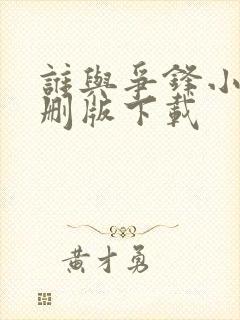 誰與爭鋒小
刪版下載
黃才勇